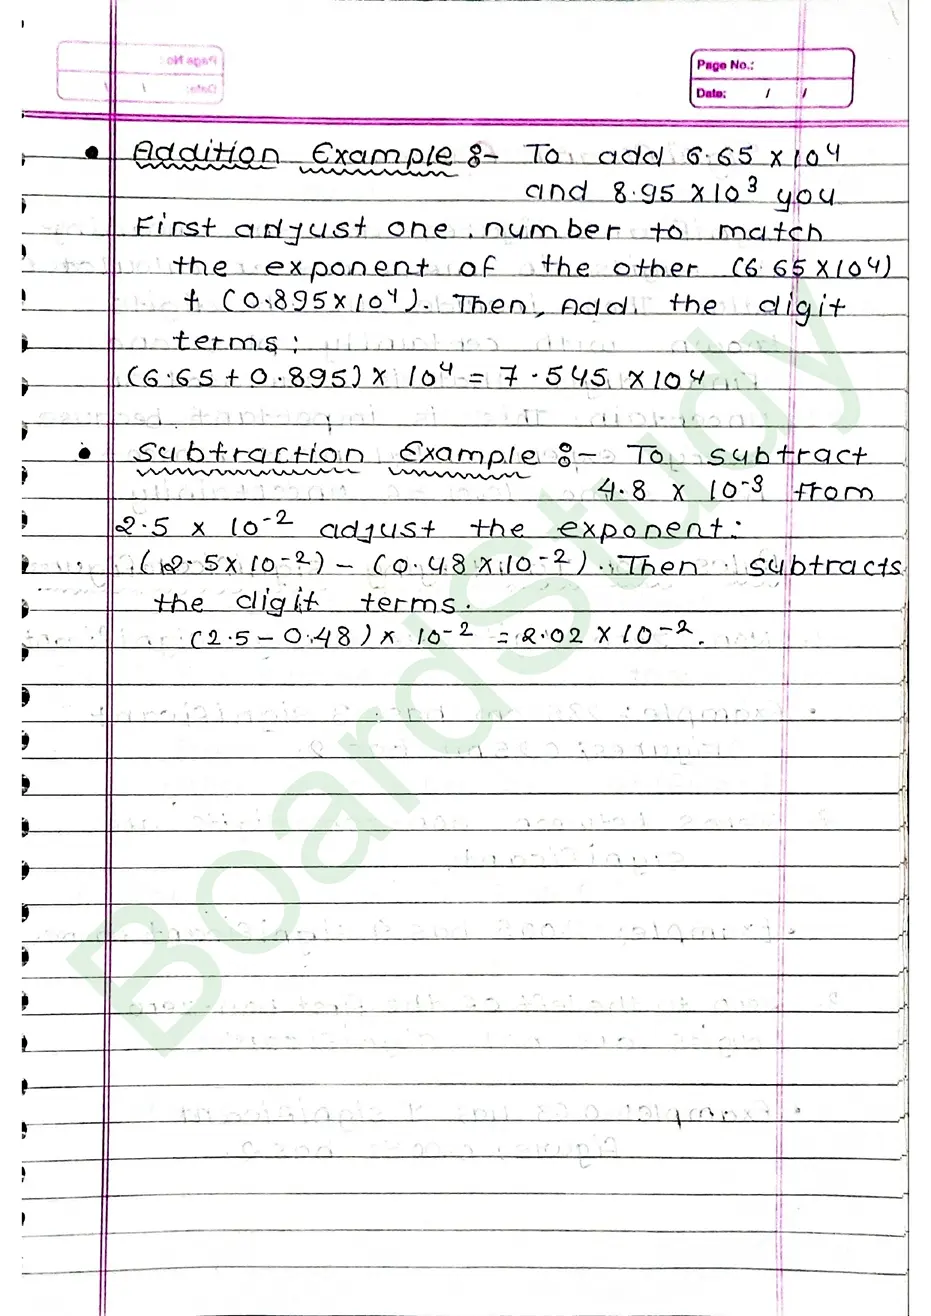 Page No.:
Date: / /
• Addition Example :- To add 6.65 × 10⁴
and 8.95 × 10³ you
First adjust one number to match
the exponent of the other (6.65 × 10⁴)
+ (0.895 × 10⁴). Then, Add the digit
terms:
(6.65 + 0.895) × 10⁴ = 7.545 × 10⁴
• Subtraction Example :- To subtract
4.8 × 10⁻³ from
2.5 × 10⁻² adjust the exponent:
(2.5 × 10⁻²) - (0.48 × 10⁻²). Then subtracts
the digit terms.
(2.5 - 0.48) × 10⁻² = 2.02 × 10⁻².
BoardStudy